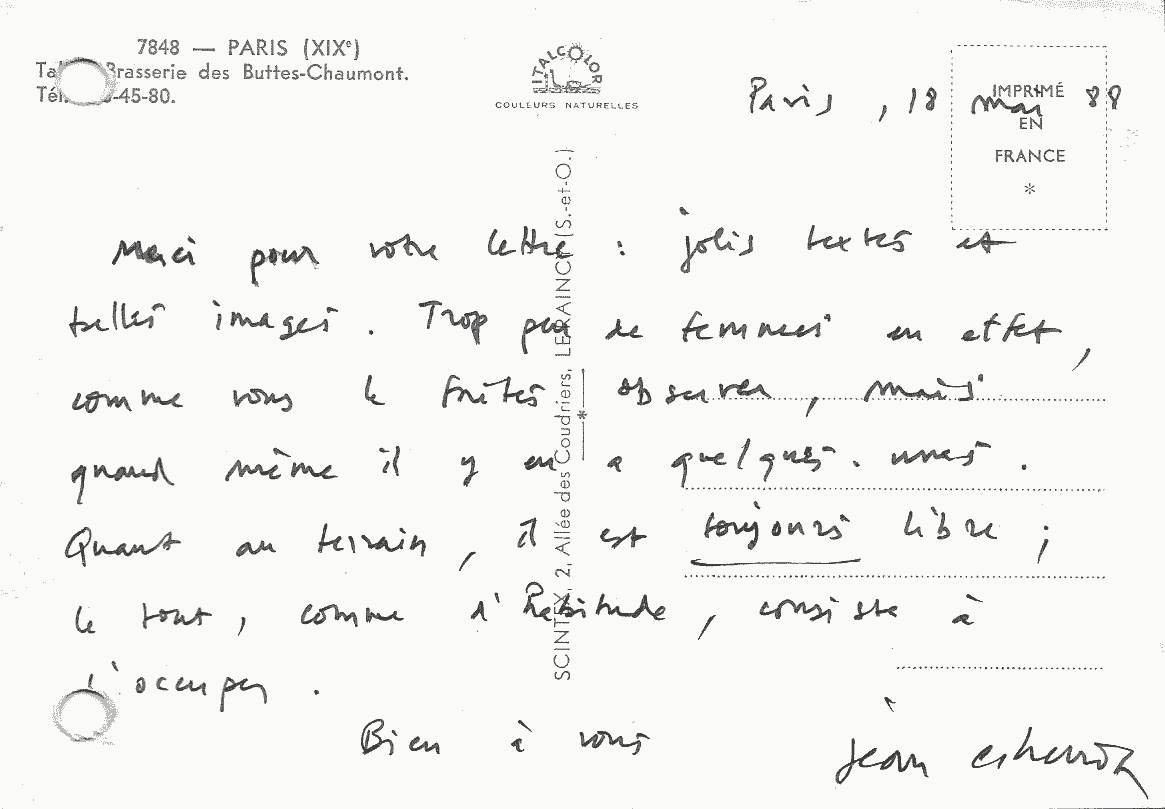 7848 — PARIS (XIXᵉ)
Brasserie des Buttes-Chaumont.
Tél. -45-80.
ITALCOLOR
COULEURS NATURELLES
IMPRIMÉ
EN
FRANCE
*
SCINTEX, 2, Allée des Coudriers, LE RAINCY (S.-et-O.)
*
Paris, 18 mai 88
Merci pour votre lettre : jolis textes et
belles images. Trop peu de femmes en effet,
comme vous le faites observer, mais
quand même il y en a quelques-unes.
Quant au terrain, il est toujours libre ;
le tout, comme d'habitude, consiste à
l'occuper.
Bien à vous
Jean